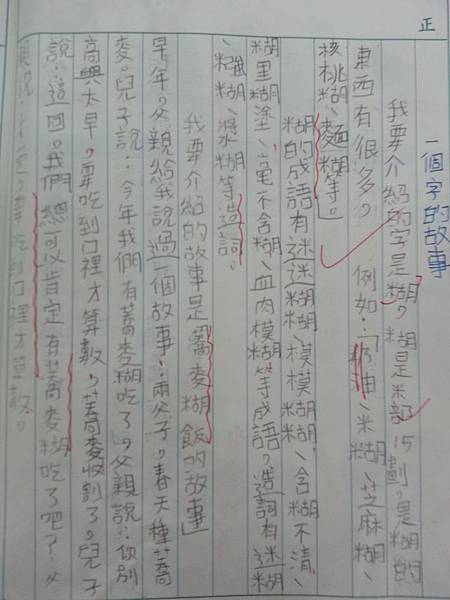 正
一個字的故事
我要介紹的字是糊，糊是米部15劃，是糊的
東西有很多。例如：奶油、米糊、芝麻糊、
核桃糊、麵糊等。
糊的成語有迷迷糊糊、模模糊糊、含糊不清、
糊里糊塗、毫不含糊、血肉模糊等成語。造詞有迷糊
、糨糊、漿糊等造詞。
我要介紹的故事是「蕎麥糊飯的故事」
早年，父親給我說過一個故事：兩父子，春天種蕎
麥。兒子說：今年我們有蕎麥糊吃了。父親說：你別
高興太早，要吃到口裡才算數，蕎麥收割了。兒子
說：這回，我們總可以肯定有蕎麥糊吃了吧？父
親說：要吃到口裡才算數。